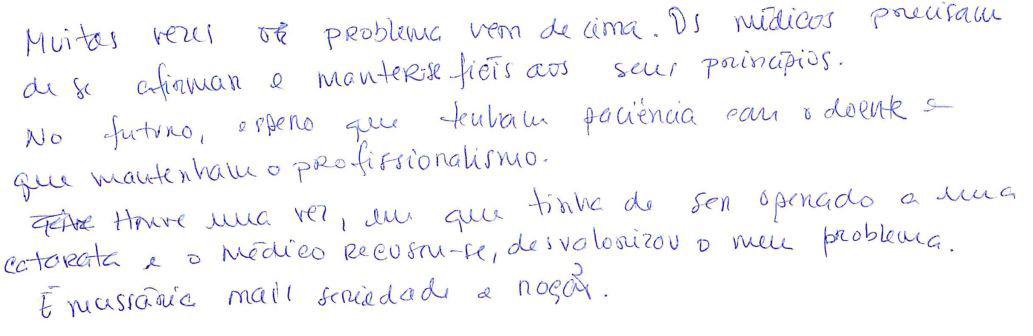 Muitas vezes o problema vem de cima. Os médicos precisam
de se afirmar e manter-se fiéis aos seus princípios.
No futuro, espero que tenham paciência com o doente e
que mantenham o profissionalismo.
Houve uma vez, em que tinha de ser operado a uma
catarata e o médico recusou-se, desvalorizou o meu problema.
É necessária mais seriedade e noção.